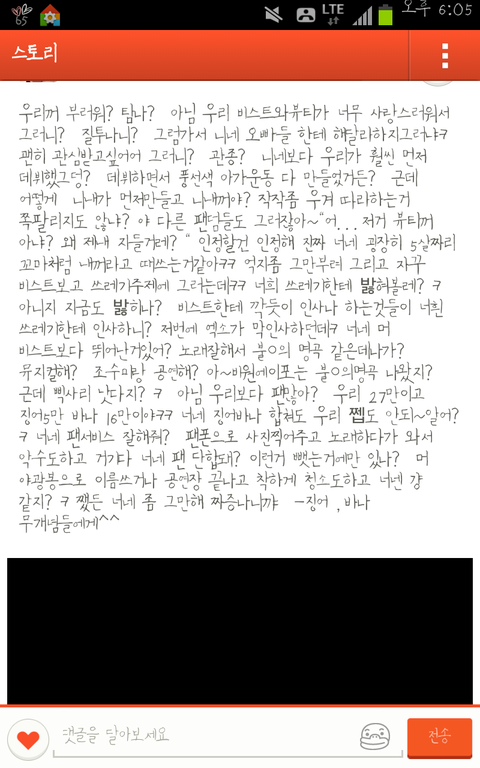 65 LTE 오후 6:05
스토리
우리꺼 부러워? 탐나? 아님 우리 비스트와뷰티가 너무 사랑스러워서
그러니? 질투나니? 그럼가서 니네 오빠들 한테 해달라하지그러냐ㅋ
괜히 관심받고싶어어 그러니? 관종? 니네보다 우리가 훨씬 먼저
데뷔했그덩? 데뷔하면서 풍선색 아가운동 다 만들었거든? 근데
어떻게 니내가 먼저만들고 나내꺼야? 작작좀 우겨 따라하는거
쪽팔리지도 않냐? 야 다른 팬덤들도 그러잖아~"어... 저거 뷰티꺼
아냐? 왜 제내 지들거레? " 인정할건 인정해 진짜 너네 굉장히 5살짜리
꼬마처럼 내꺼라고 때쓰는거같아ㅋㅋ 억지좀 그만부려 그리고 자꾸
비스트보고 쓰레기주제에 그러는데ㅋㅋ 너희 쓰레기한테 밣혀볼레? ㅋ
아니지 지금도 밣히나? 비스트한테 깍듯이 인사나 하는것들이 너흰
쓰레기한테 인사하니? 저번에 엑소가 막인사하던데ㅋ 너네 머
비스트보다 뛰어난거있어? 노래잘해서 불O의 명곡 같은데나가?
뮤지컬해? 조수마랑 공연해? 아~비원에이포는 불O의명곡 나왔지?
근데 삑사리 낫다지? ㅋ 아님 우리보다 팬많아? 우리 27만이고
징어5만 바나 16만이야ㅋㅋ 너네 징어바나 합쳐도 우리 쩹도 안되~알어?
ㅋ 너네 팬서비스 잘해줘? 팬폰으로 사진찍어주고 노래하다가 와서
악수도하고 거기다 너네 팬 단합돼? 이런거 뺏는거에만 있나? 머
야광봉으로 이름쓰거나 공연장 끝나고 착하게 청소도하고 너넨 걍
같지? ㅋ 쨌든 너네 좀 그만해 짜증나니꺄 -징어 , 바나
무개념들에게^^
댓글을 달아보세요
전송